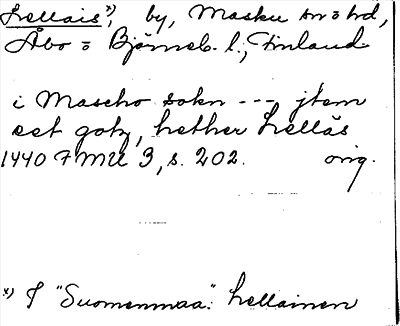 Lellais x), by, Masku sn o hd,
Åbo o Björneb. l., Finland
i Mascho sokn --- jtem
eet gotz, hether Lelläs
1440 FMU 3, s. 202. orig.
x) I "Suomenmaa": Lellainen